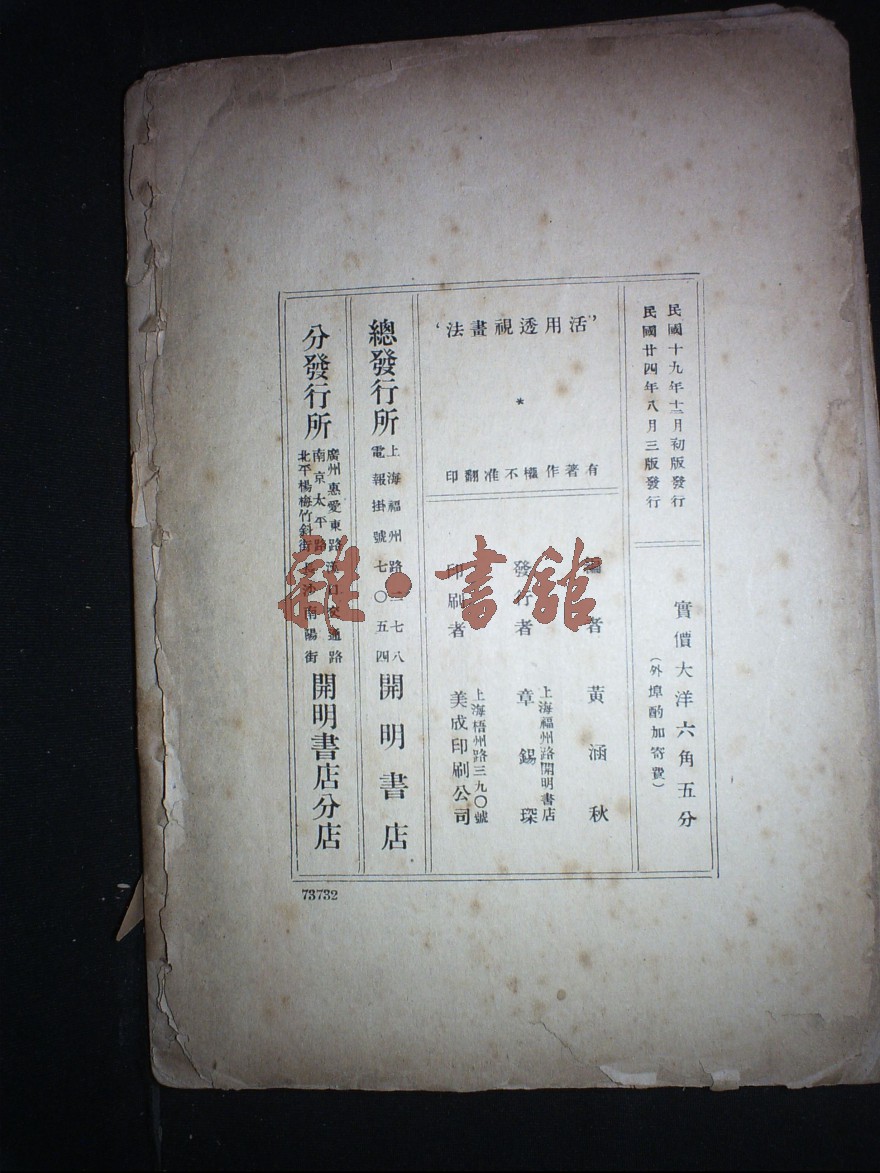 民國十九年十二月初版發行
民國廿四年八月三版發行
實價大洋六角五分
(外埠酌加寄費)
‘活用透視畫法’
*
有著作權不准翻印
者 黃涵秋
發行者 章錫琛
上海福州路開明書店
印刷者 美成印刷公司
上海梧州路三九〇號
總發行所
上海福州路二七八
電報掛號七〇五四
開明書店
分發行所
廣州惠愛東路 漢口交通路
南京太平路
北平楊梅竹斜街 長沙南陽街
開明書店分店
73732
雜·書館